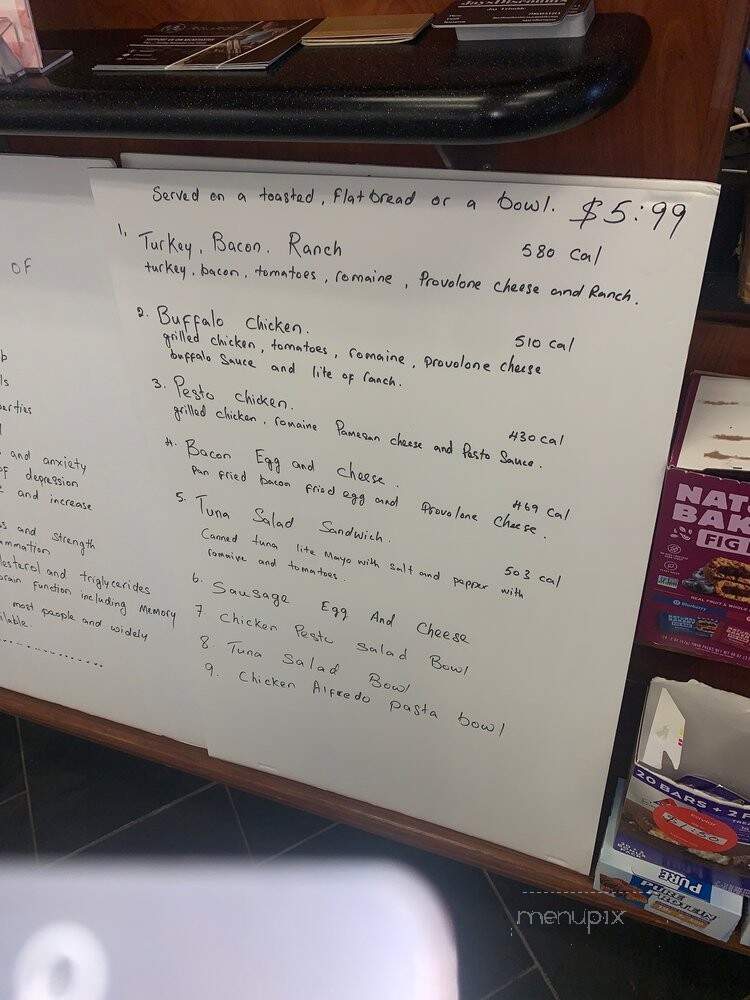 Served on a toasted, Flatbread or a bowl. $5:99
1, Turkey, Bacon. Ranch 580 Cal
turkey, bacon, tomatoes, romaine, Provolone cheese and Ranch.
2. Buffalo chicken. 510 Cal
grilled chicken, tomatoes, romaine, provolone cheese
buffalo Sauce and lite of ranch.
3. Pesto chicken. 430 cal
grilled chicken, romaine Pamesan cheese and Pesto Sauce.
4. Bacon Egg and cheese. 469 Cal
Pan fried bacon fried egg and Provolone Cheese.
5. Tuna Salad Sandwich. 503 cal
Canned tuna lite Mayo with Salt and pepper with
romaive and tomatoes.
6. Sausage Egg And Cheese
7. Chicken Pesto Salad Bowl
8. Tuna Salad Bowl
9. Chicken Alfredo pasta bowl
OF
and anxiety
of depression
and increase
and strength
and triglycerides
brain function including Memory
most people and widely
NAT
BAK
FIG
Blueberry
20 BARS + 2
$1.50
PURE
menupix